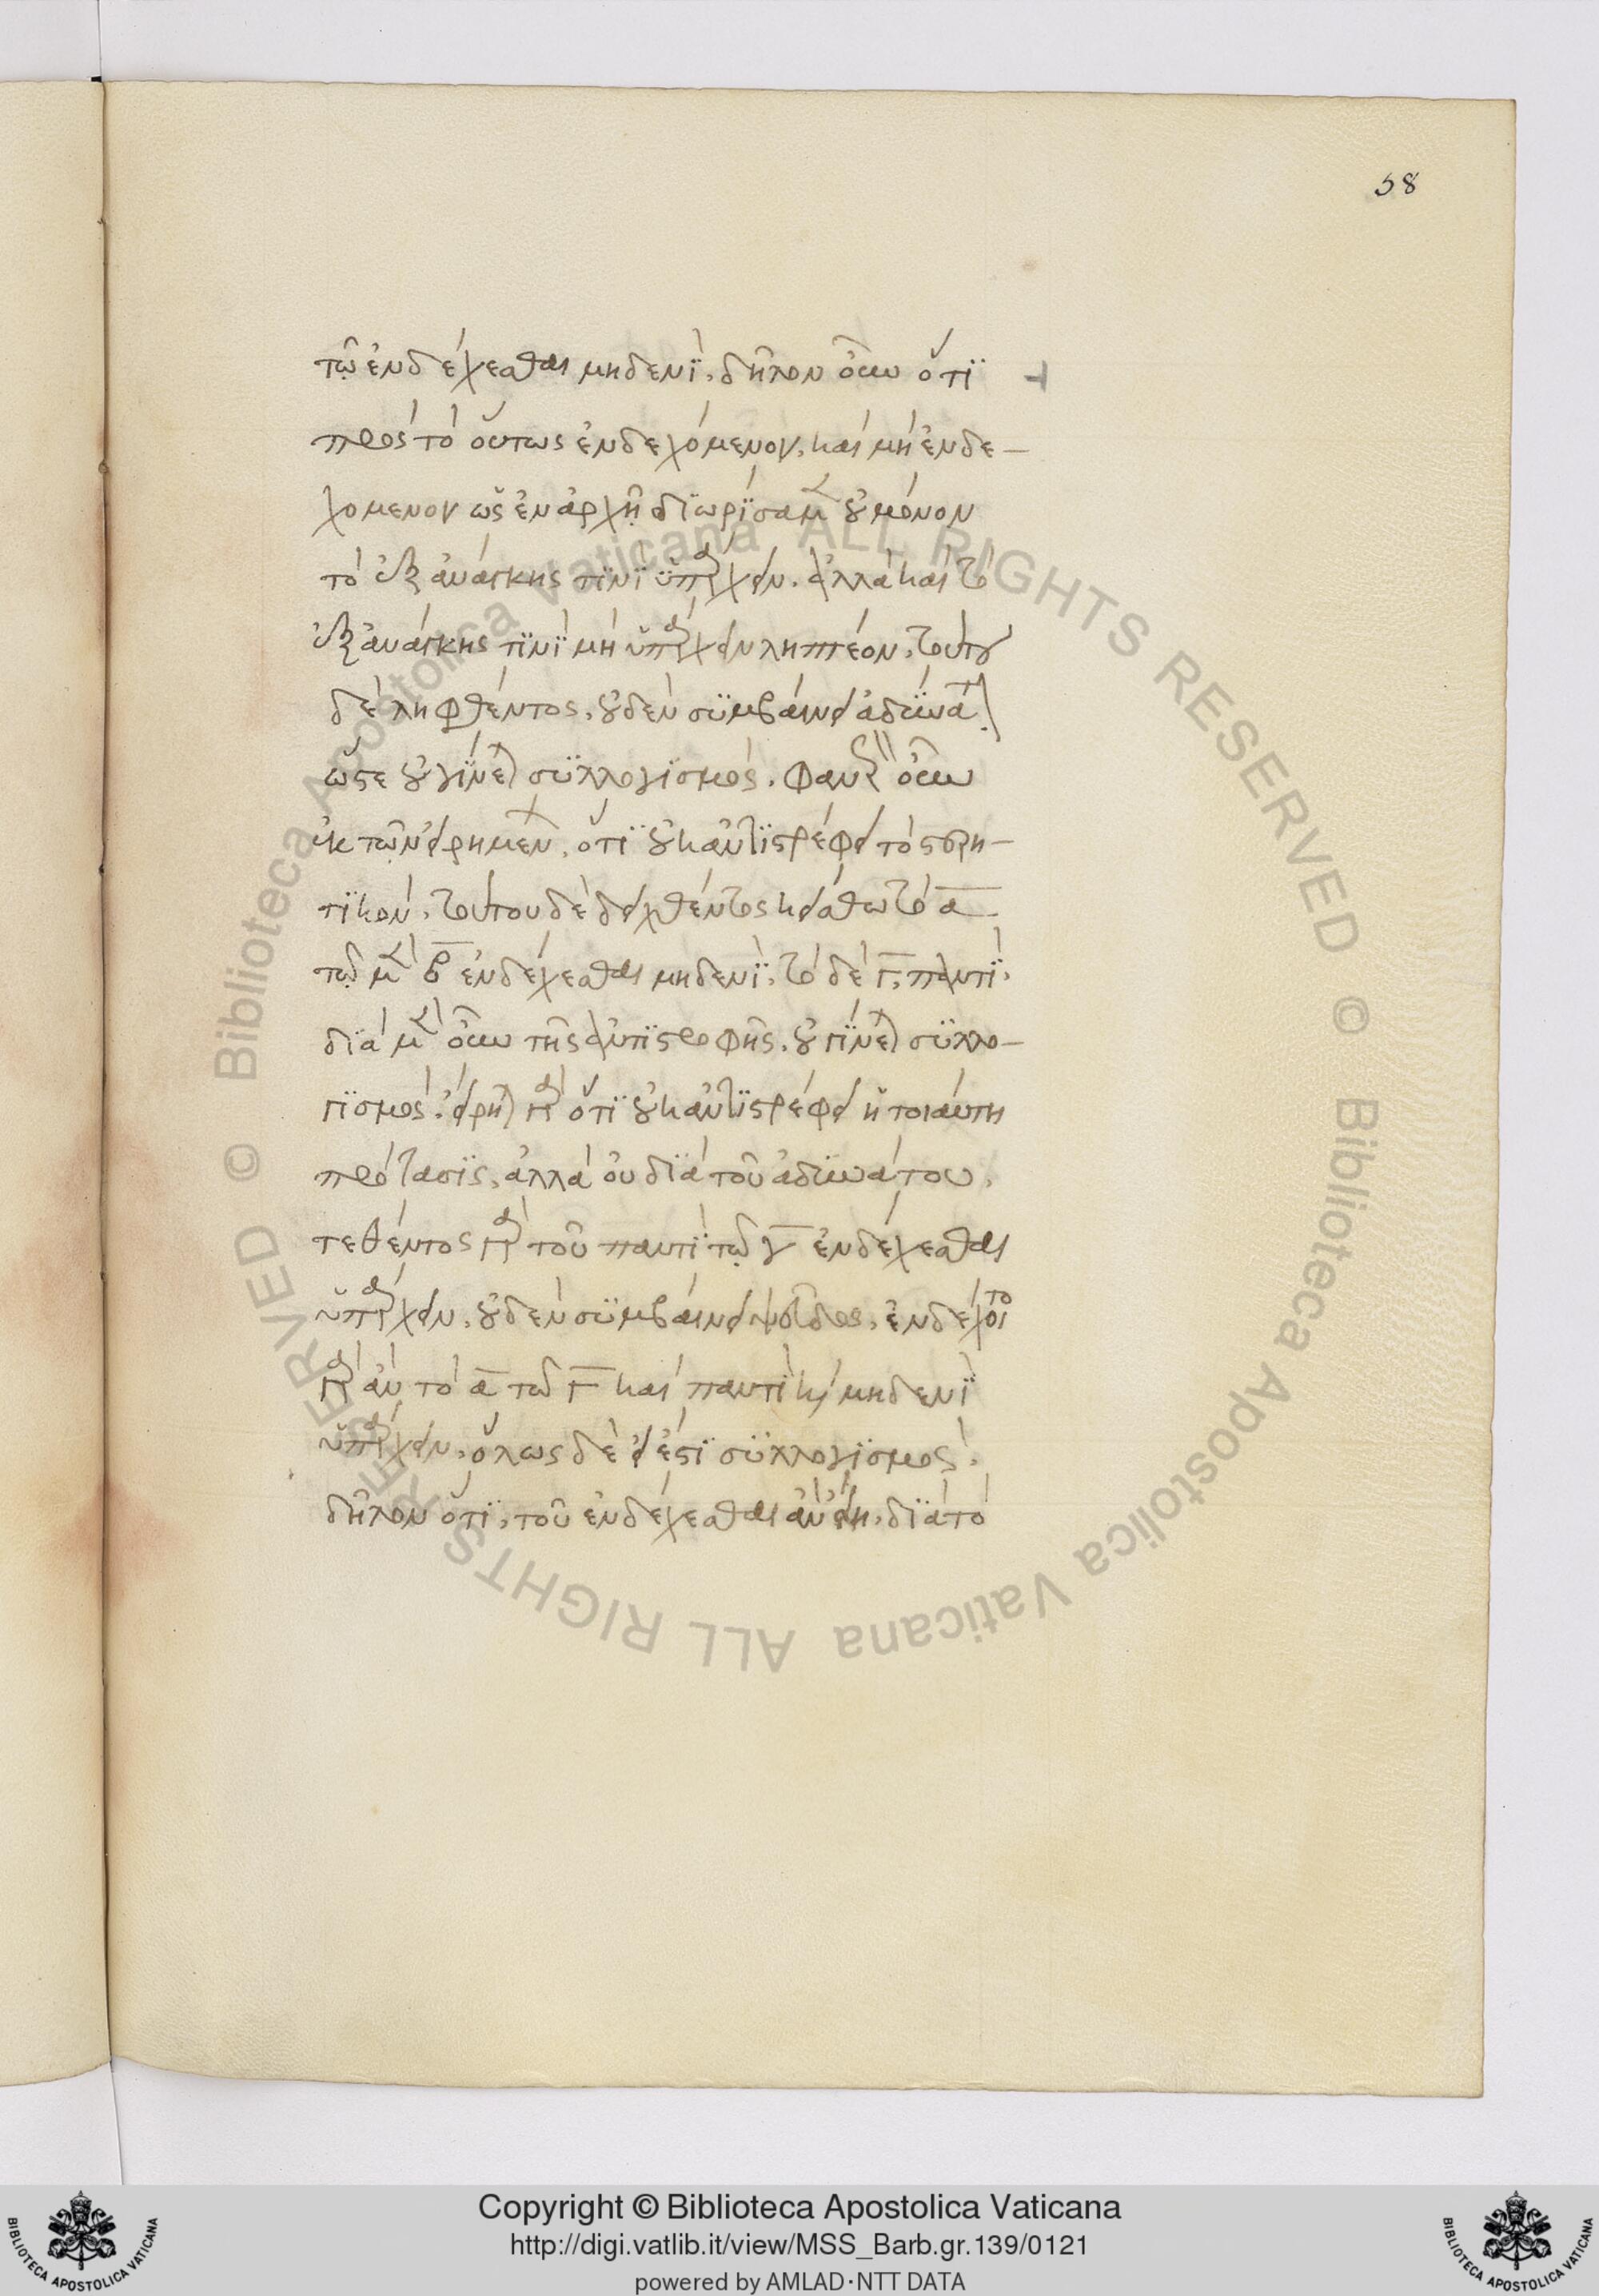 58
τῷ ἐνδέχεσθαι μηδενὶ. δῆλον οὖν ὅτι
πρὸς τὸ οὕτως ἐνδεχόμενον, καὶ μὴ ἐνδε-
χόμενον ὡς ἐν ἀρχῇ διωρίσαμεν οὐ μόνον
τὸ ἐξ ἀνάγκης τινὶ ὑπάρχειν. ἀλλὰ καὶ τὸ
ἐξ ἀνάγκης τινὶ μὴ ὑπάρχειν ληπτέον. τούτου
δὲ ληφθέντος, οὐδὲν συμβαίνει ἀδύνατον.
ὥστε οὐ γίνεται συλλογισμός. φανερὸν οὖν
ἐκ τῶν εἰρημένων, ὅτι οὐκ ἀντιστρέφει τὸ στερη-
τικόν. τούτου δὲ δειχθέντος κείσθω τὸ α
τῷ μὲν β ἐνδέχεσθαι μηδενὶ, τὸ δὲ γ, παντὶ.
διὰ μὲν οὖν τῆς ἀντιστροφῆς. οὐ γίνεται συλλο-
γισμός. εἴρηται γὰρ ὅτι οὐκ ἀντιστρέφει ἡ τοιαύτη
πρότασις. ἀλλὰ οὐ διὰ τοῦ ἀδυνάτου.
τεθέντος γὰρ τοῦ παντὶ τῷ γ ἐνδέχεσθαι
ὑπάρχειν, οὐδὲν συμβαίνει ψεῦδος. ἐνδέχοιτο
γὰρ ἂν τὸ α τῷ γ καὶ παντὶ καὶ μηδενὶ
ὑπάρχειν. ὅλως δὲ εἰ ἔστι συλλογισμός.
δῆλον ὅτι, τοῦ ἐνδέχεσθαι ἂν εἴη. διὰ τὸ
Copyright © Biblioteca Apostolica Vaticana
http://digi.vatlib.it/view/MSS_Barb.gr.139/0121
powered by AMLAD·NTT DATA